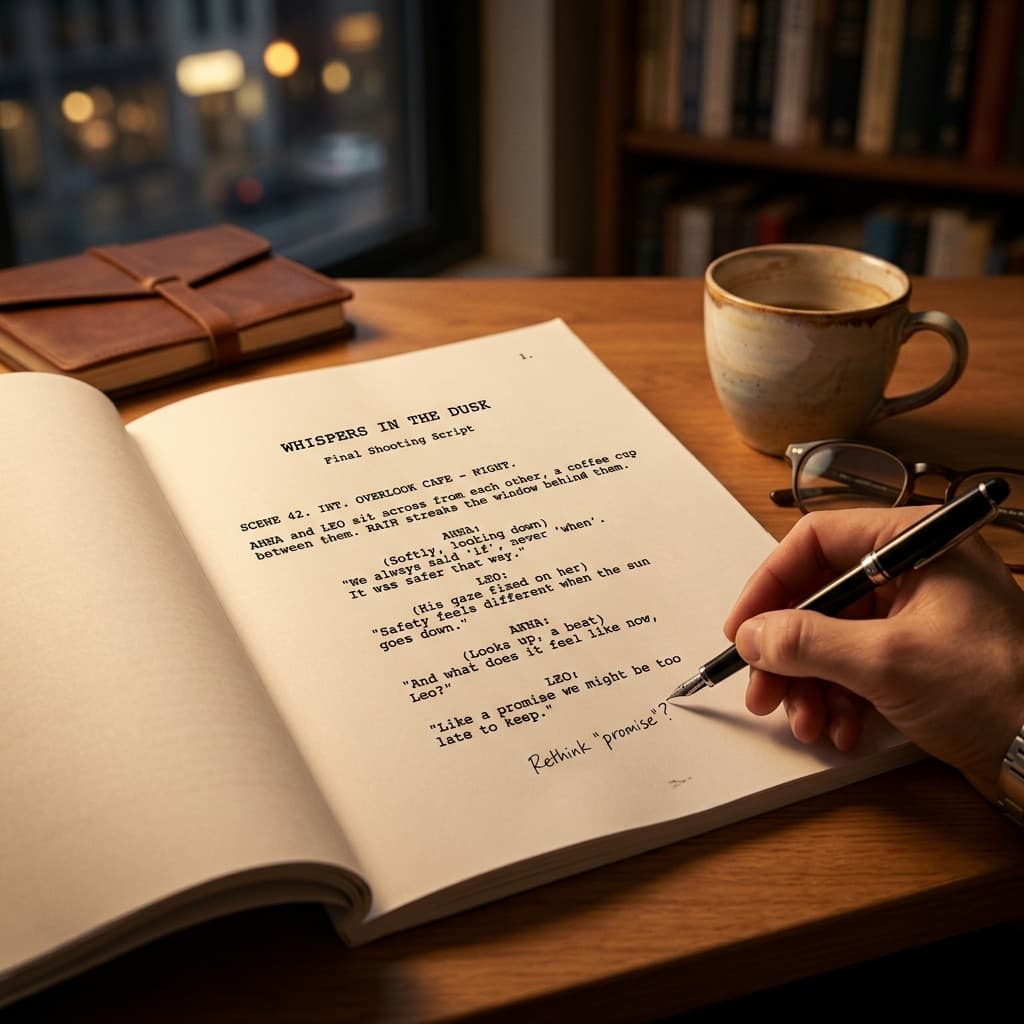 1.
WHISPERS IN THE DUSK
Final Shooting Script
SCENE 42. INT. OVERLOOK CAFE - NIGHT.
ANNA and LEO sit across from each other, a coffee cup
between them. RAIN streaks the window behind them.
ANNA:
(Softly, looking down)
"We always said 'if', never 'when'.
It was safer that way."
LEO:
(His gaze fixed on her)
"Safety feels different when the sun
goes down."
ANNA:
(Looks up, a beat)
"And what does it feel like now,
Leo?"
LEO:
"Like a promise we might be too
late to keep."
Rethink "promise"?